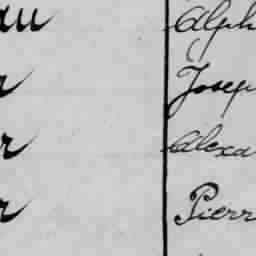 au Alph
r Josep
r Alexa
r Pierr